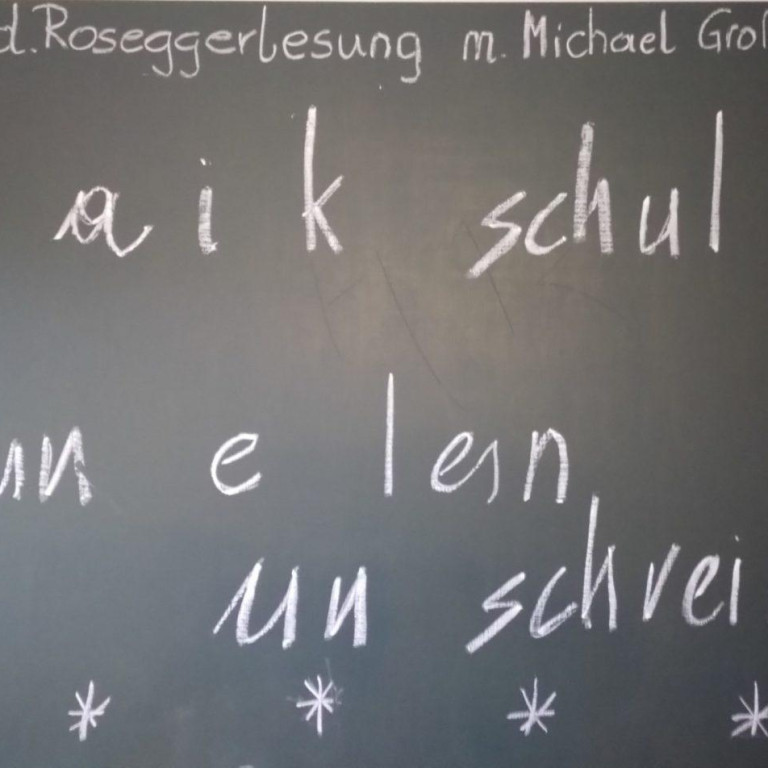 d. Roseggerlesung m. Michael Groß
a i k schul
un e lern
un schrei
* * * *